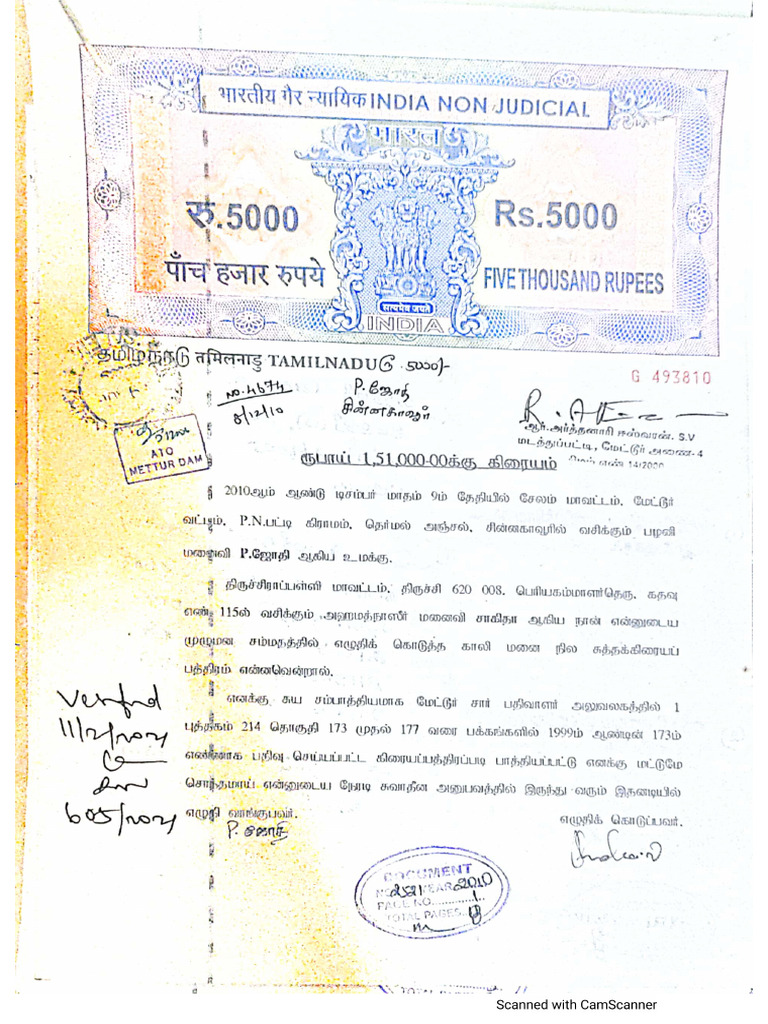 भारतीय गैर न्यायिक INDIA NON JUDICIAL
भारत
रु.5000
Rs.5000
पाँच हजार रुपये
FIVE THOUSAND RUPEES
सत्यमेव जयते
INDIA
தமிழ்நாடு तमिलनाडु TAMILNADU ரூ 5000/-
G 493810
No. 4674
8/12/10
P. ஜோதி
சின்னகாவூர்
ஆர்.அர்த்தனாரி ஈஸ்வரன். S.V
மடத்துப்பட்டி, மேட்டூர் அணை-4
எண் 14/2000
ATO
METTUR DAM
ரூபாய் 1,51,000-00க்கு கிரையம்
2010ஆம் ஆண்டு டிசம்பர் மாதம் 9ம் தேதியில் சேலம் மாவட்டம், மேட்டூர்
வட்டம், P.N.பட்டி கிராமம், தெர்மல் அஞ்சல், சின்னகாவூரில் வசிக்கும் பழனி
மனைவி P.ஜோதி ஆகிய உமக்கு,
திருச்சிராப்பள்ளி மாவட்டம், திருச்சி 620 008, பெரியகம்மாளர்தெரு, கதவு
எண் 115ல் வசிக்கும் அஹமத்நாஸீர் மனைவி சாகிதா ஆகிய நான் என்னுடைய
முழுமன சம்மதத்தில் எழுதிக் கொடுத்த காலி மனை நில சுத்தக்கிரையப்
பத்திரம் என்னவென்றால்,
எனக்கு சுய சம்பாத்தியமாக மேட்டூர் சார் பதிவாளர் அலுவலகத்தில் 1
புத்தகம் 214 தொகுதி 173 முதல் 177 வரை பக்கங்களில் 1999ம் ஆண்டின் 173ம்
எண்ணாக பதிவு செய்யப்பட்ட கிரையப்பத்திரப்படி பாத்தியப்பட்டு எனக்கு மட்டுமே
சொந்தமாய் என்னுடைய நேரடி சுவாதீன அனுபவத்தில் இருந்து வரும் இதனடியில்
எழுதி வாங்குபவர்.
எழுதிக் கொடுப்பவர்.
P. ஜோதி
Verified
11/2/2021
605/2021
DOCUMENT
NO 2521 YEAR 2010
PAGE NO. 1
TOTAL PAGES 8
Scanned with CamScanner